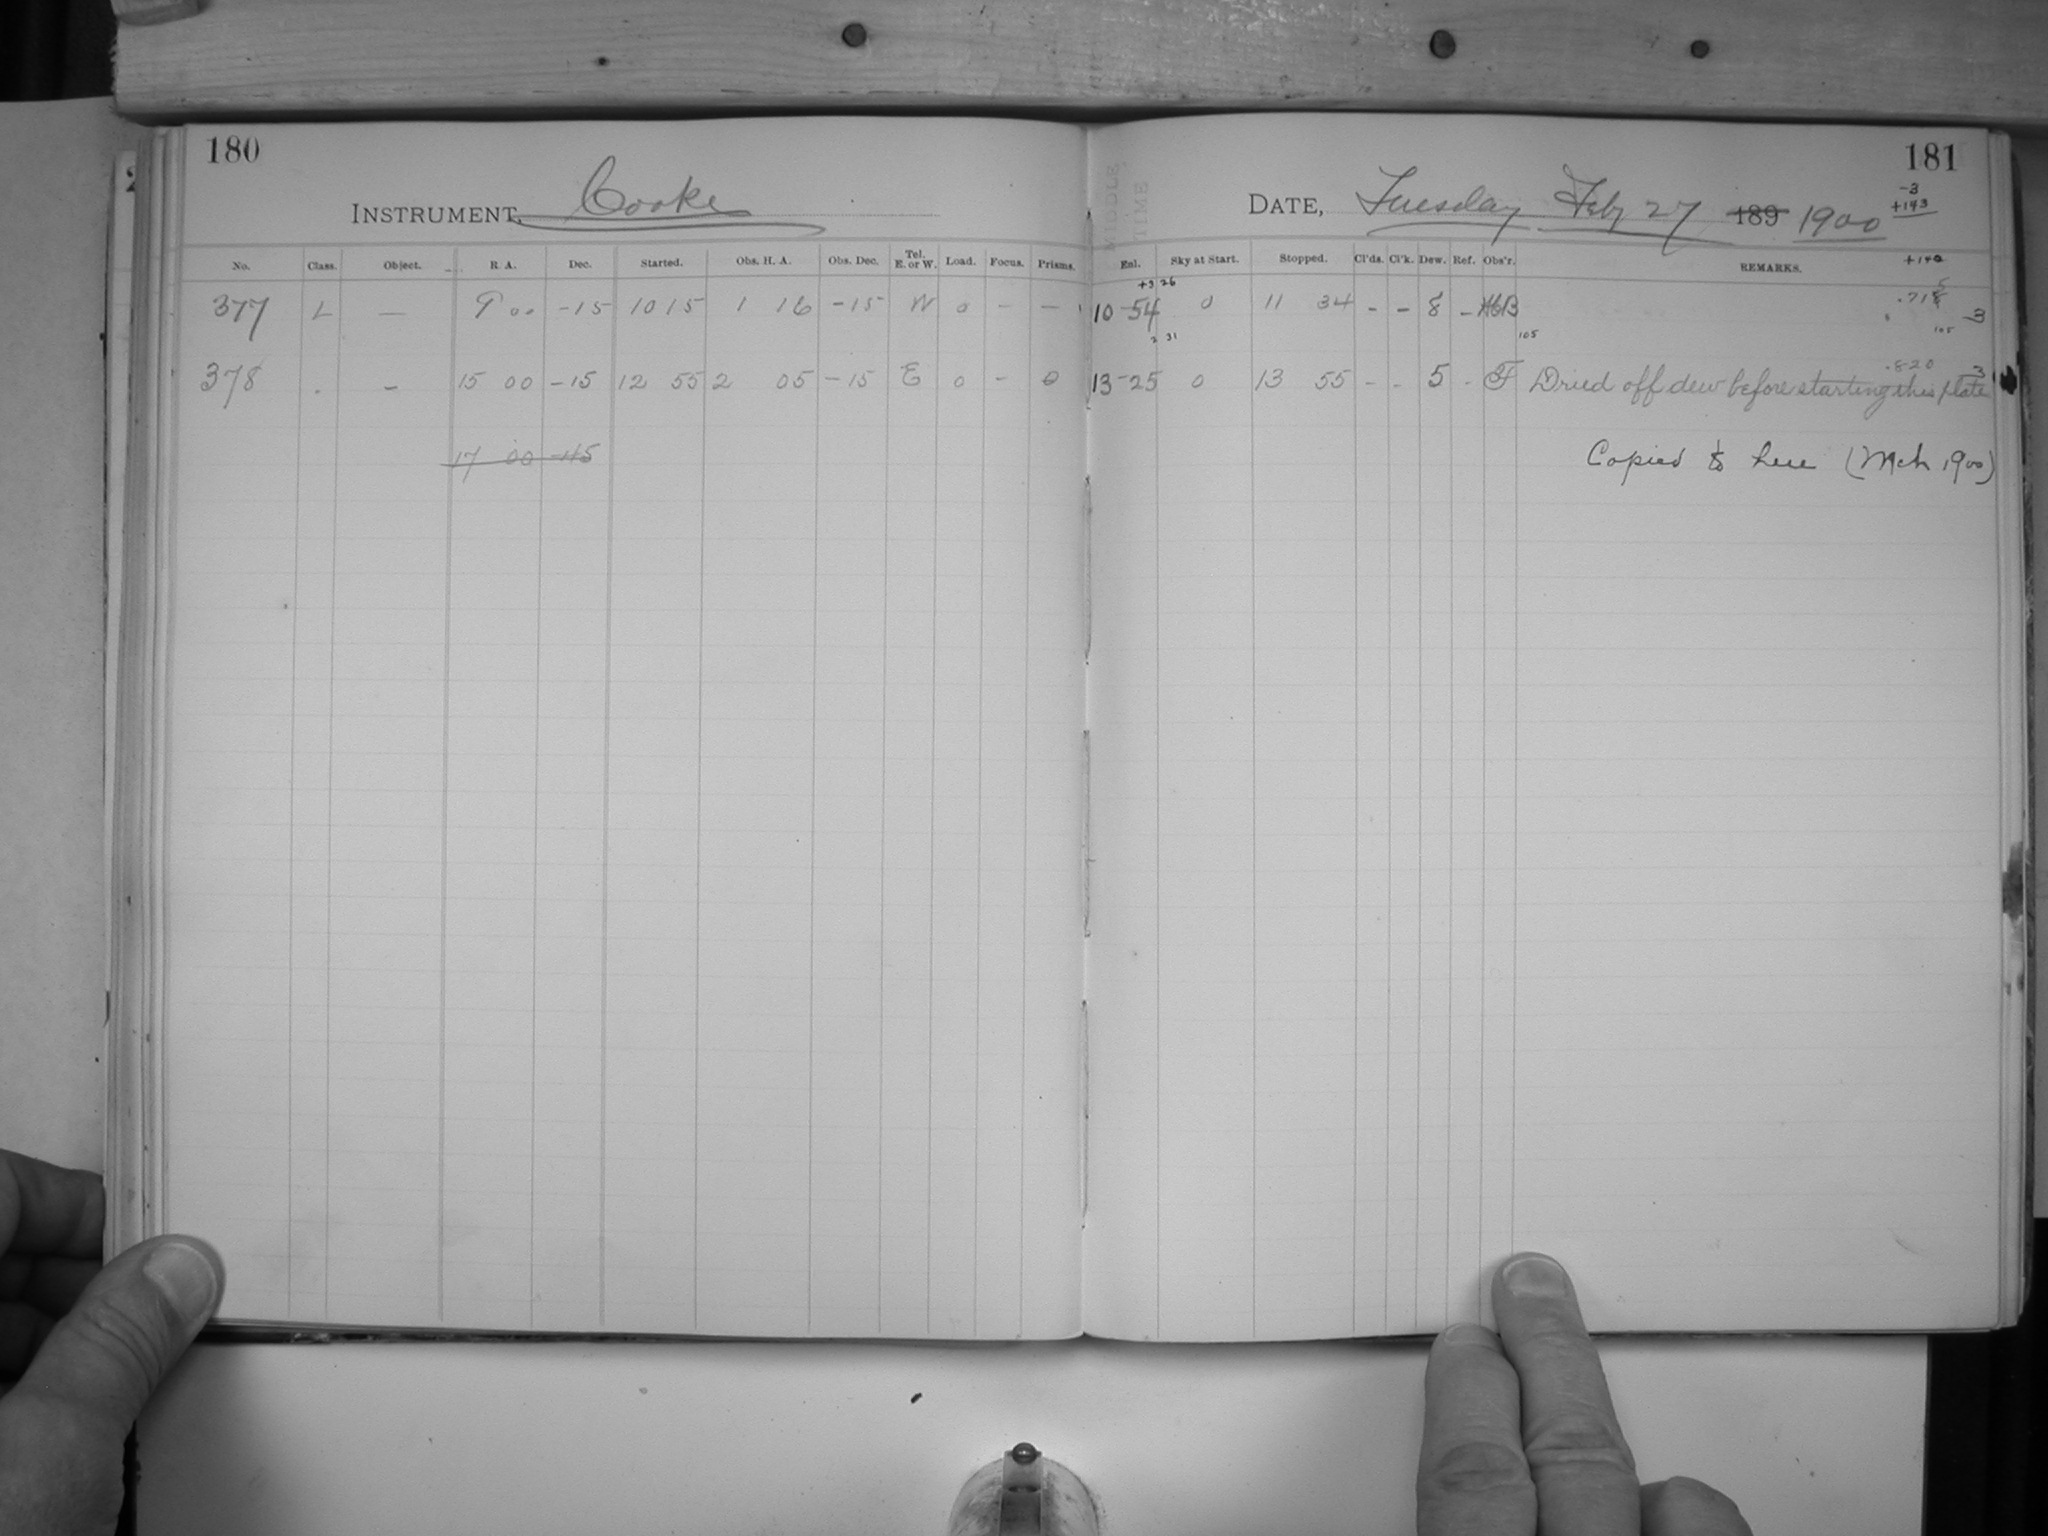 180
INSTRUMENT, Cooke
No. Class. Object. R. A. Dec. Started. Obs. H. A. Obs. Dec. Tel. E. or W. Load. Focus. Prisms.
377 L — 9 00 -15 10 15 1 16 -15 W 0 - -
378 . - 15 00 -15 12 55 2 05 -15 E 0 - 0
17 00 -45
181
MIDDLE
TIME
DATE, Tuesday Feby 27 189 1900
-3
+143
+140
Enl. Sky at Start. Stopped. Cl'ds. Cl'k. Dew. Ref. Obs'r. REMARKS.
+3 26
10-54 0 11 34 - - 8 - -3
2 31 105 105
.820 3
13-25 0 13 55 - - 5 - F Dried off dew before starting this plate
Copied to here (Mch 1900)